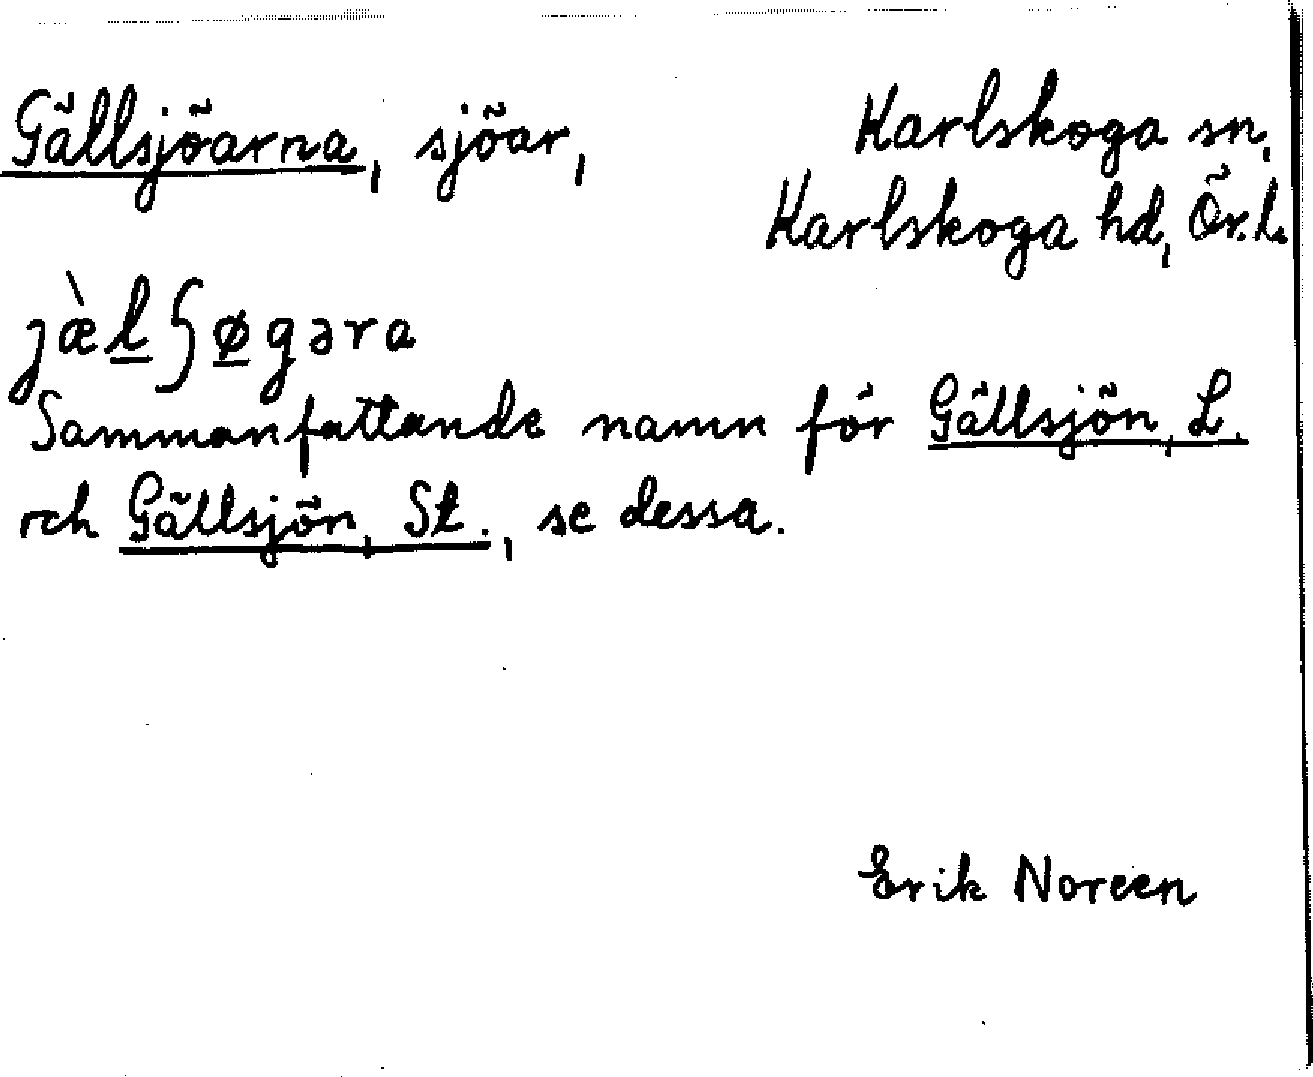 Gällsjöarna, sjöar, Karlskoga sn,
Karlskoga hd, Ör.l.
jæ̀l̲ʃø̲gəra
Sammanfattande namn för Gällsjön, L.
och Gällsjön, St., se dessa.
Erik Noreen